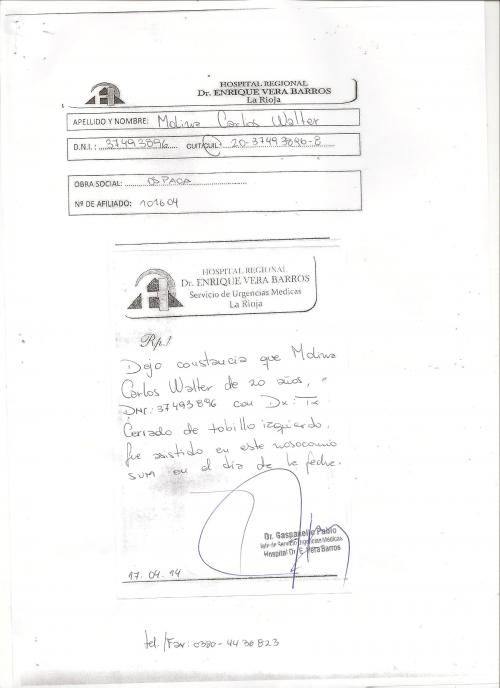 HOSPITAL REGIONAL
Dr. ENRIQUE VERA BARROS
La Rioja
APELLIDO Y NOMBRE: Molina Carlos Walter
D.N.I.: 37493896 CUIT/CUIL: 20-37493896-8
OBRA SOCIAL: OSPACA
Nº DE AFILIADO: 101604
HOSPITAL REGIONAL
Dr. ENRIQUE VERA BARROS
Servicio de Urgencias Medicas
La Rioja
Rp./
Dejo constancia que Molina
Carlos Walter de 20 años,
DNI: 37493896 con Dx: Tx
Cerrado de tobillo izquierdo,
fue asistido en este nosocomio
SUM en el dia de la fecha.
Dr. Gaspanello Pablo
Jefe de Servicio Urgencias Médicas
Hospital Dr. E. Vera Barros
17.04.14
tel./Fax: 0380-4436823